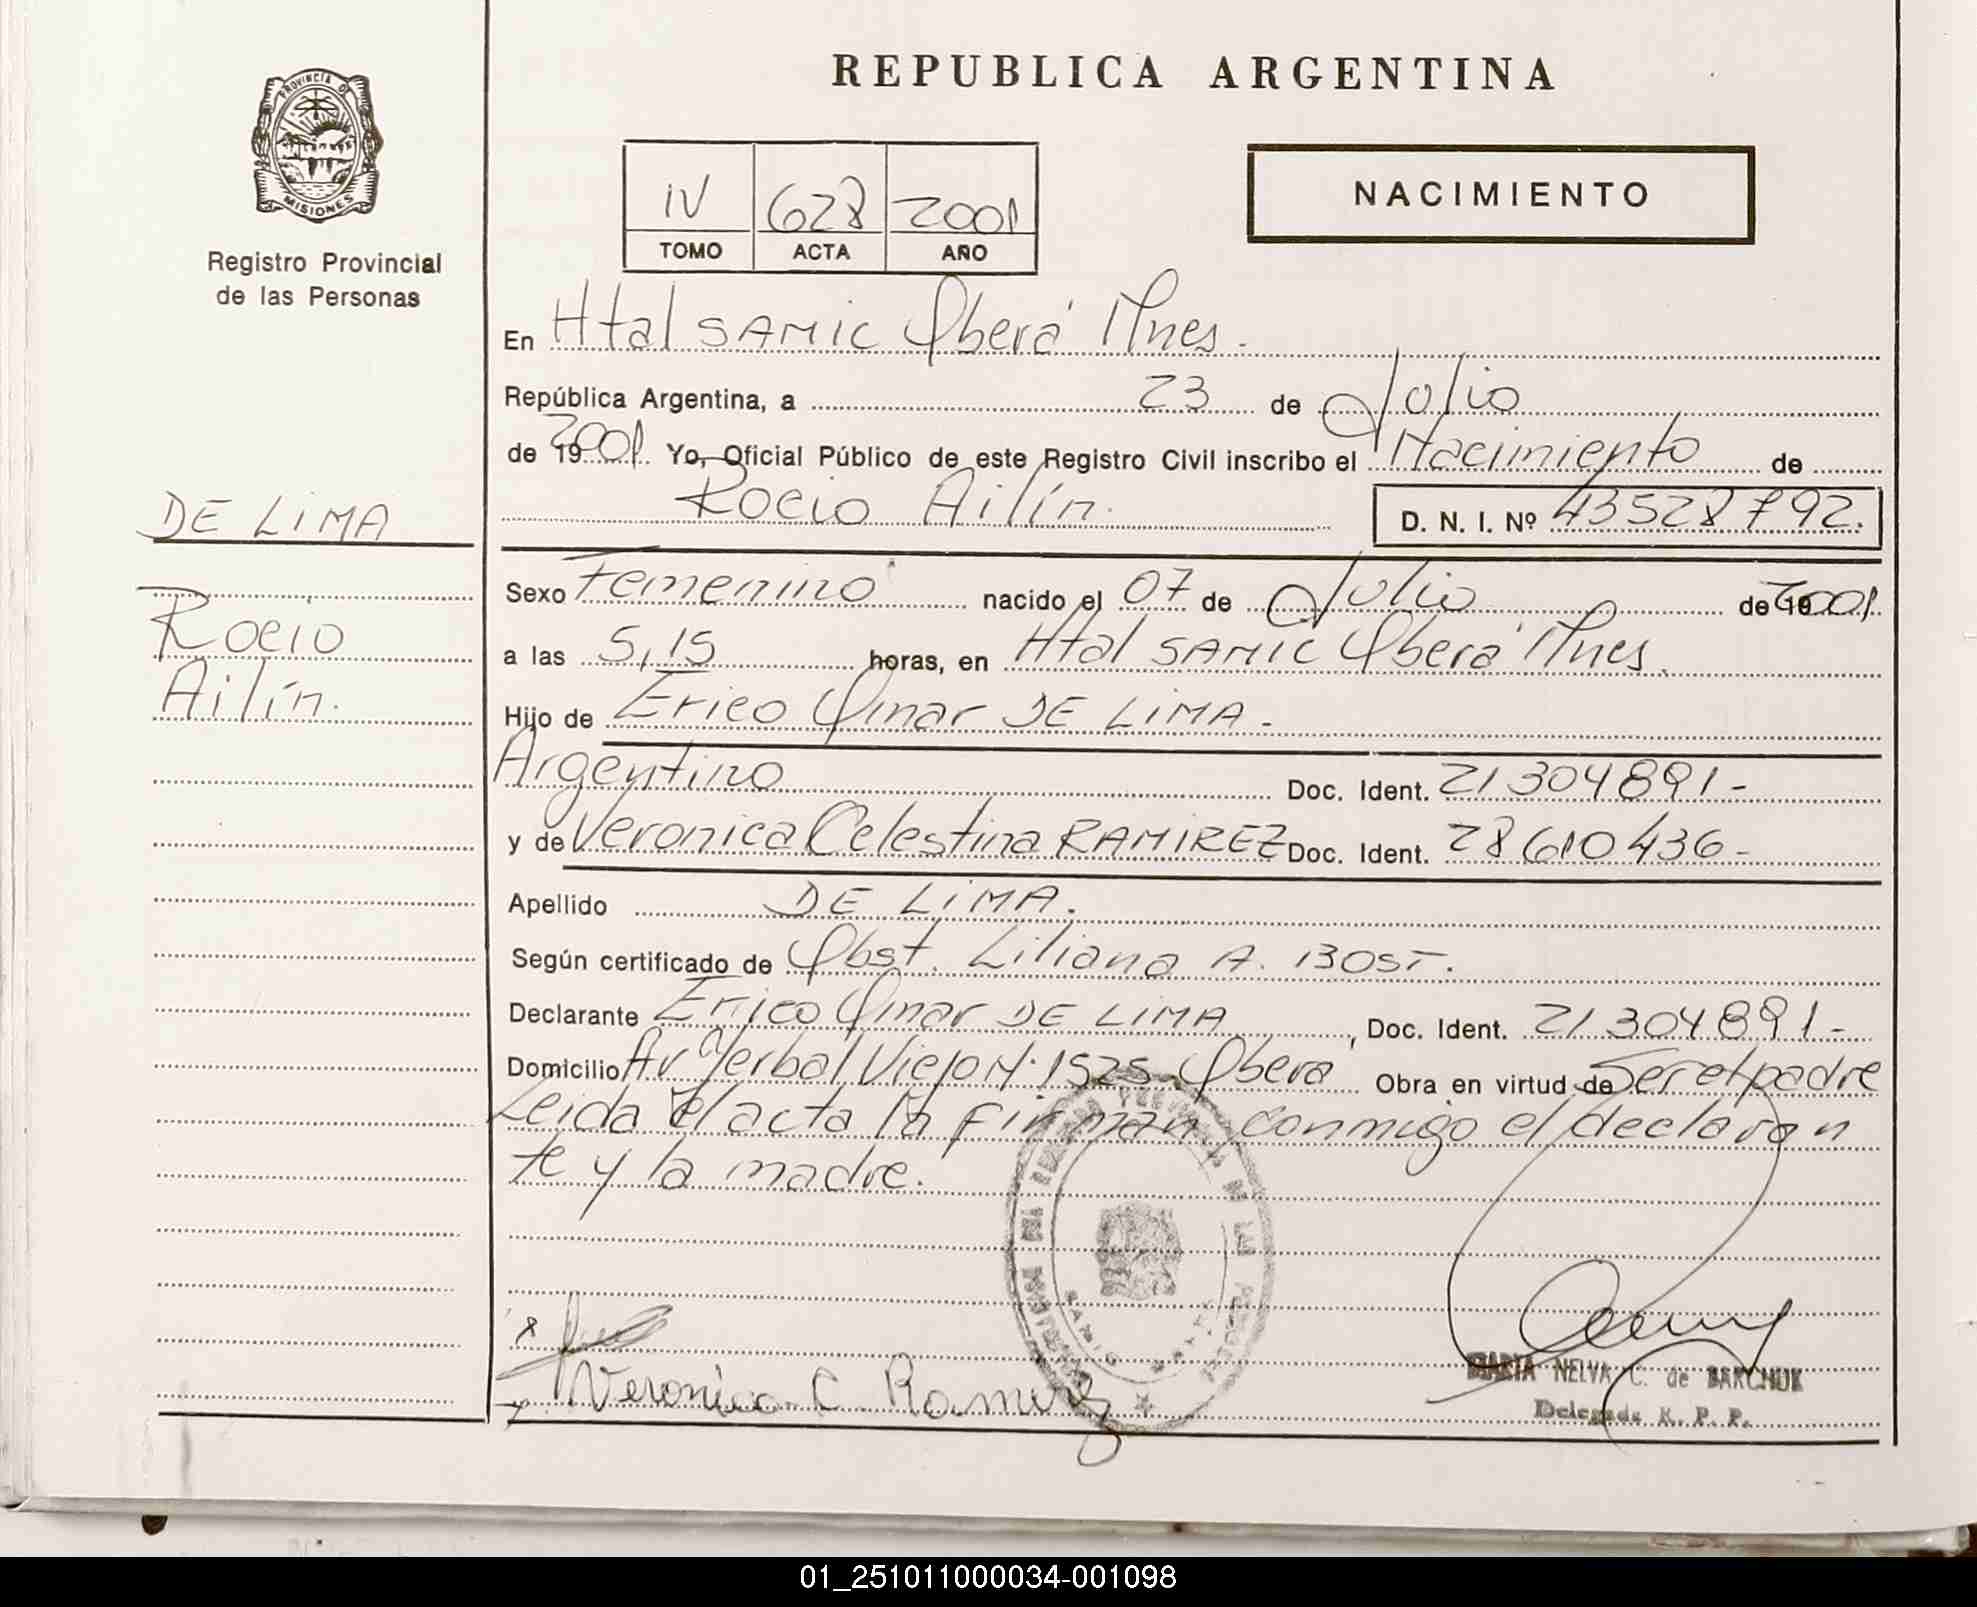 REPUBLICA ARGENTINA
PROVINCIA DE
MISIONES
Registro Provincial
de las Personas
IV 628 2001
TOMO ACTA AÑO
NACIMIENTO
En Htal SAMIC Oberá Mnes.
República Argentina, a 23 de Julio
de 19 2001 Yo, Oficial Público de este Registro Civil inscribo el Nacimiento de
Rocio Ailín. D. N. I. Nº 43528792.
DE LIMA
Rocio
Ailín.
Sexo Femenino nacido el 07 de Julio de 19 2001.
a las 5,15 horas, en Htal SAMIC Oberá Mnes.
Hijo de Erico Omar DE LIMA.-
Argentino Doc. Ident. 21304891-
y de Veronica Celestina RAMIREZ Doc. Ident. 28610436-
Apellido DE LIMA.
Según certificado de Obst. Liliana A. BOST.
Declarante Erico Omar DE LIMA, Doc. Ident. 21304891-
Domicilio Av Yerbal Viejo N. 1525 Oberá Obra en virtud de Ser el padre
Leida el acta la firman conmigo el declaran
te y la madre.
Veronica C. Ramirez
MARTA NELVA C. de BARCHUK
Delegada R. P. P.
01_251011000034-001098